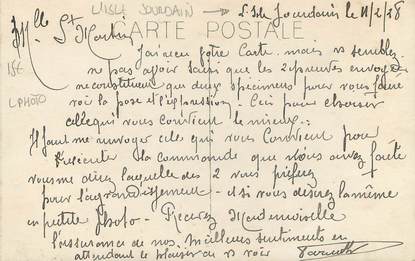 L'ISLE JOURDAIN → L'Isle Jourdain le 11/2/28
Mlle St Martin
CARTE POSTALE
15€
L PHOTO
J'ai reçu votre Carte mais vs semblez
ne pas avoir saisi que les 2 épreuves envoyées
ne constituent que deux spécimens pour vous faire
voir la pose et l'expression - Ceci pour choisir
celle qui vous convient le mieux -
Il faut me renvoyer celle qui vous Convient pour
exécuter la commande que vous avez faite
vous me direz laquelle des 2 vous préférez
pour l'agrandissement - et si vous désirez la même
en petite photo - Recevez Mademoiselle
l'assurance de nos meilleurs sentiments en
attendant le plaisir de vs voir